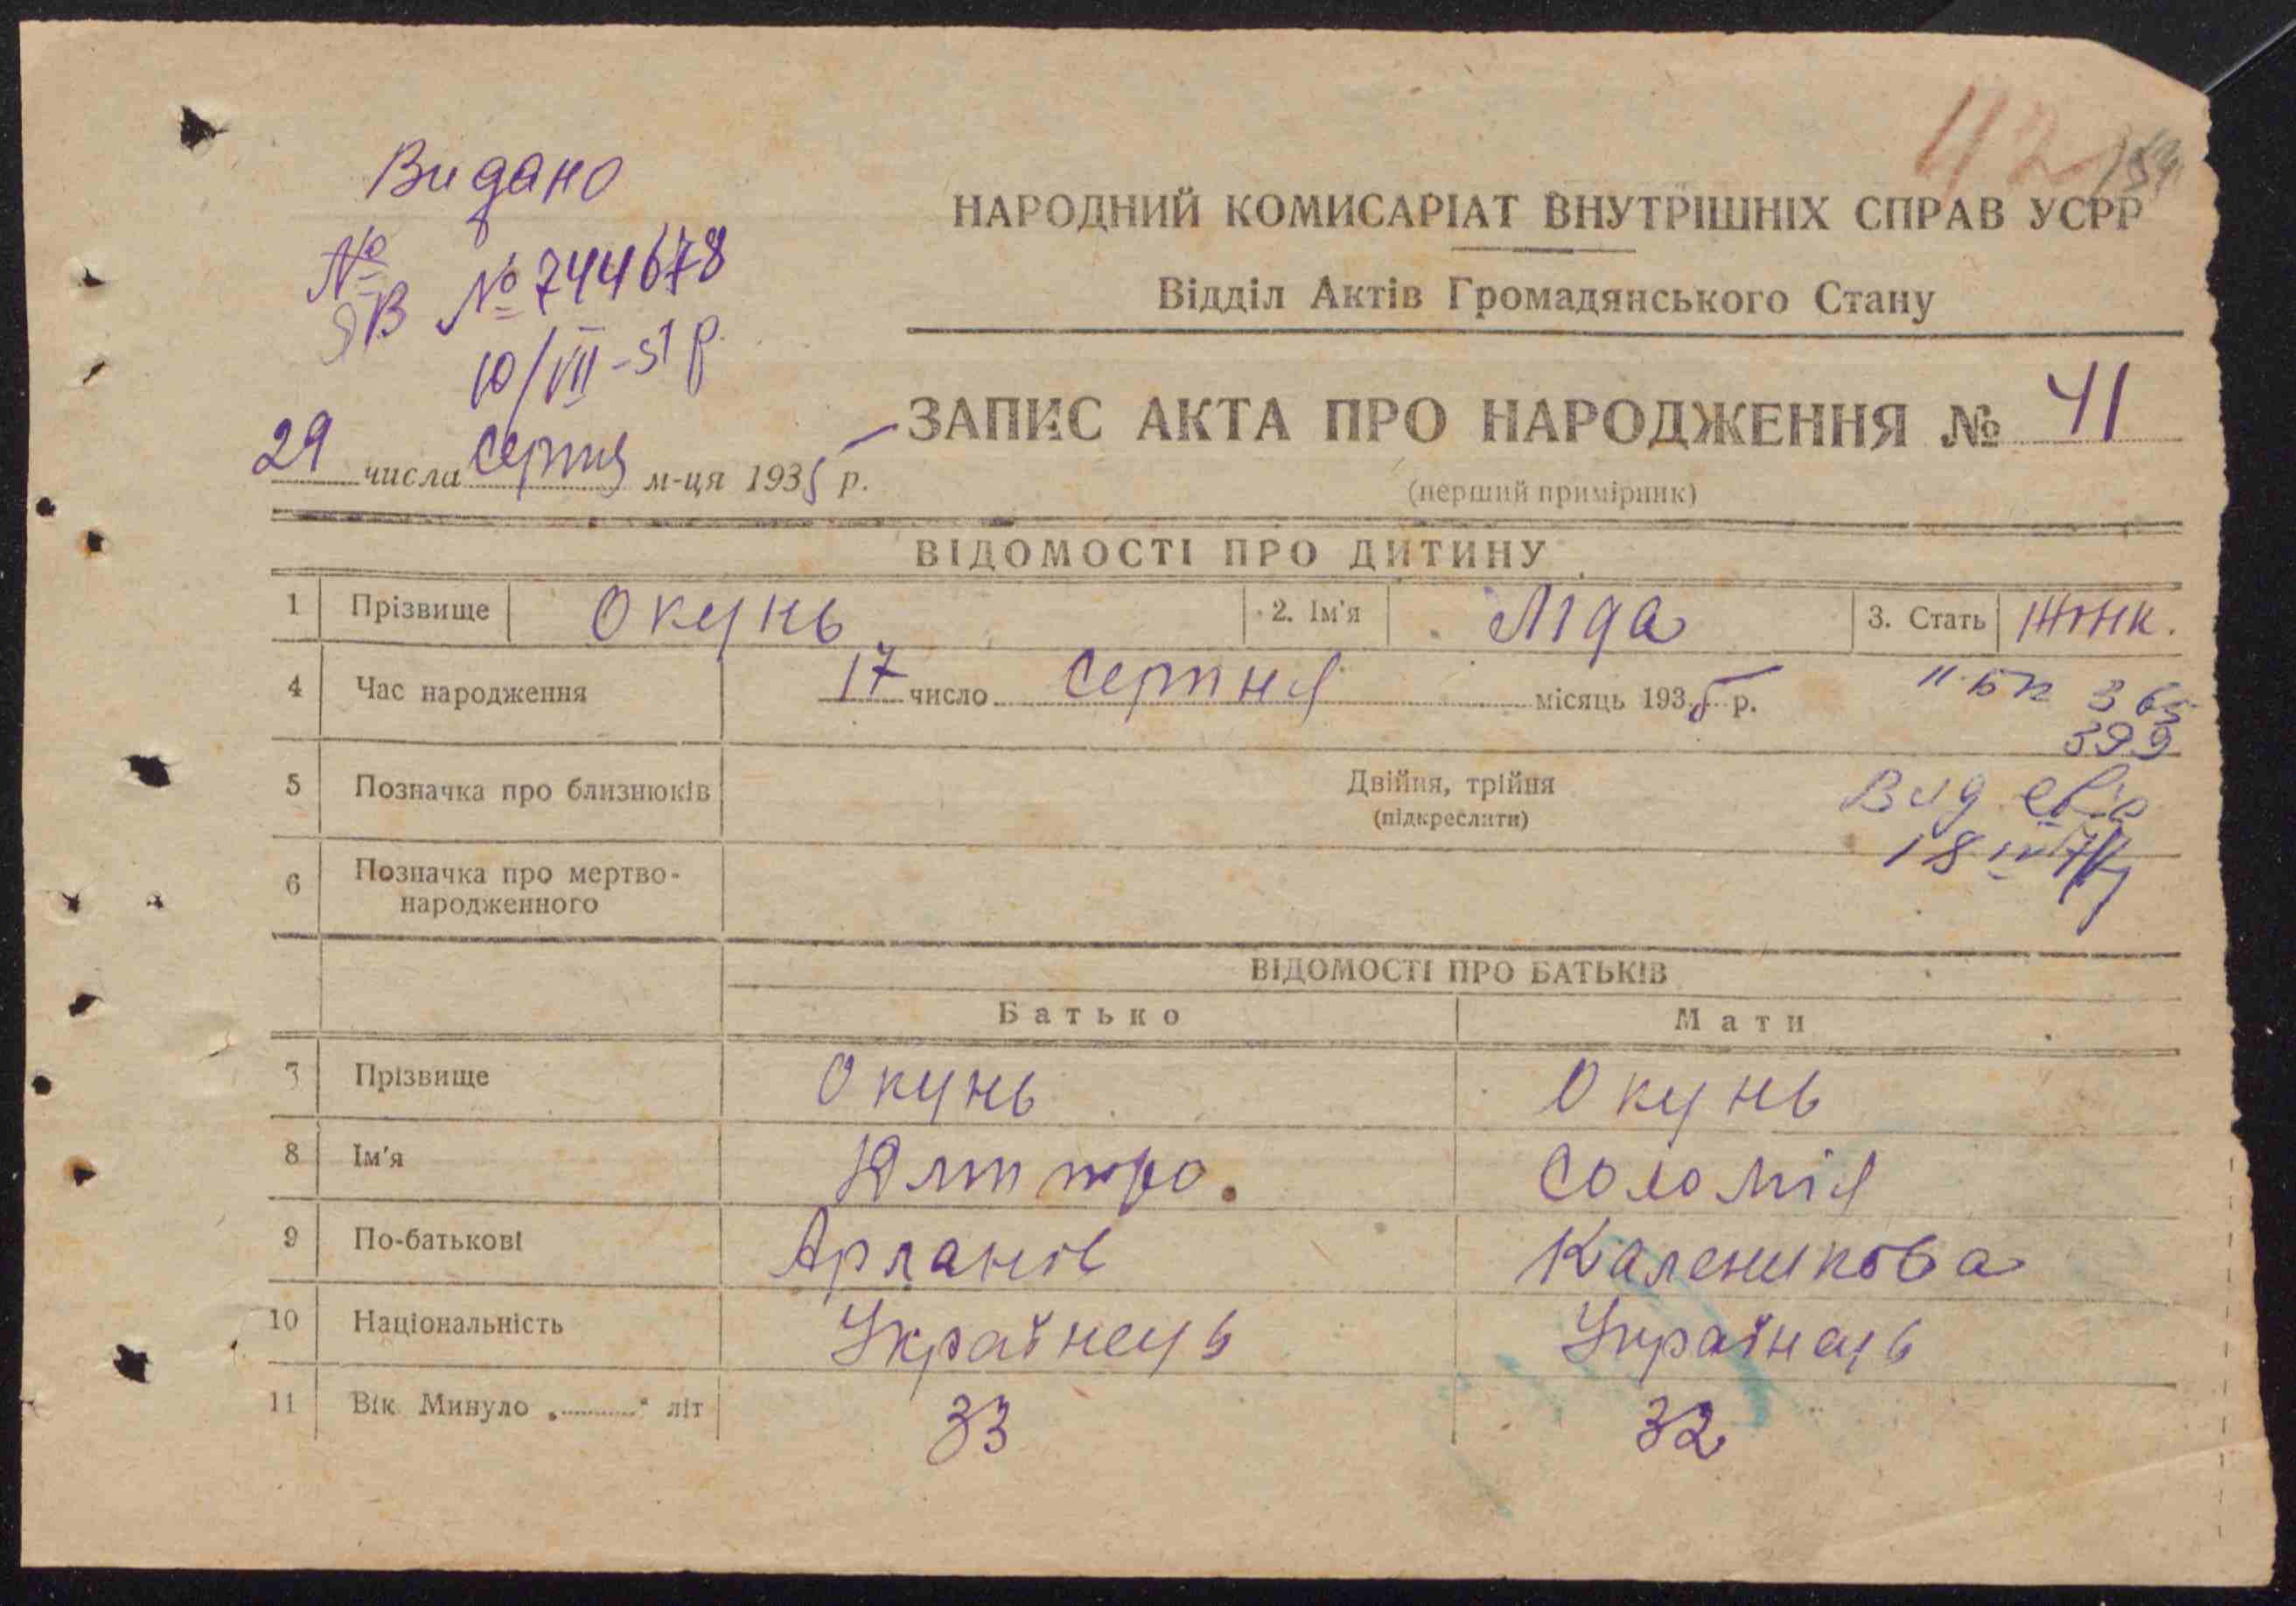 42
Видано
№
ЯВ № 744678
10/VII-51 р.
НАРОДНИЙ КОМИСАРІАТ ВНУТРІШНІХ СПРАВ УСРР
Відділ Актів Громадянського Стану
ЗАПИС АКТА ПРО НАРОДЖЕННЯ № 41
29 числа серпня м-ця 1935 р.
(перший примірник)
ВІДОМОСТІ ПРО ДИТИНУ
1 Прізвище Окунь 2. Ім'я Ліда 3. Стать Жінк.
4 Час народження 17 число серпня місяць 1935 р.
399
5 Позначка про близнюків Двійня, трійня
(підкреслити)
Вид
18
6 Позначка про мертво-
народженного
ВІДОМОСТІ ПРО БАТЬКІВ
Батько Мати
7 Прізвище Окунь Окунь
8 Ім'я Дмитро. Соломія
9 По-батькові Каленикова
10 Національність Українець Українець
11 Вік Минуло „ " літ 33 32